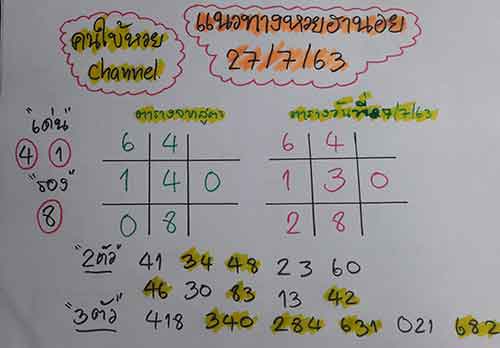 คนใบ้หวย
Channel
แนวทางหวยฮานอย
27/7/63
"เด่น"
4 1
"รอง"
8
ตารางจากสูตร
6 4
1 4 0
0 8
ตารางวันที่27/7/63
6 4
1 3 0
2 8
"2ตัว" 41 34 48 23 60
46 30 83 13 42
"3ตัว" 418 340 284 631 021 682